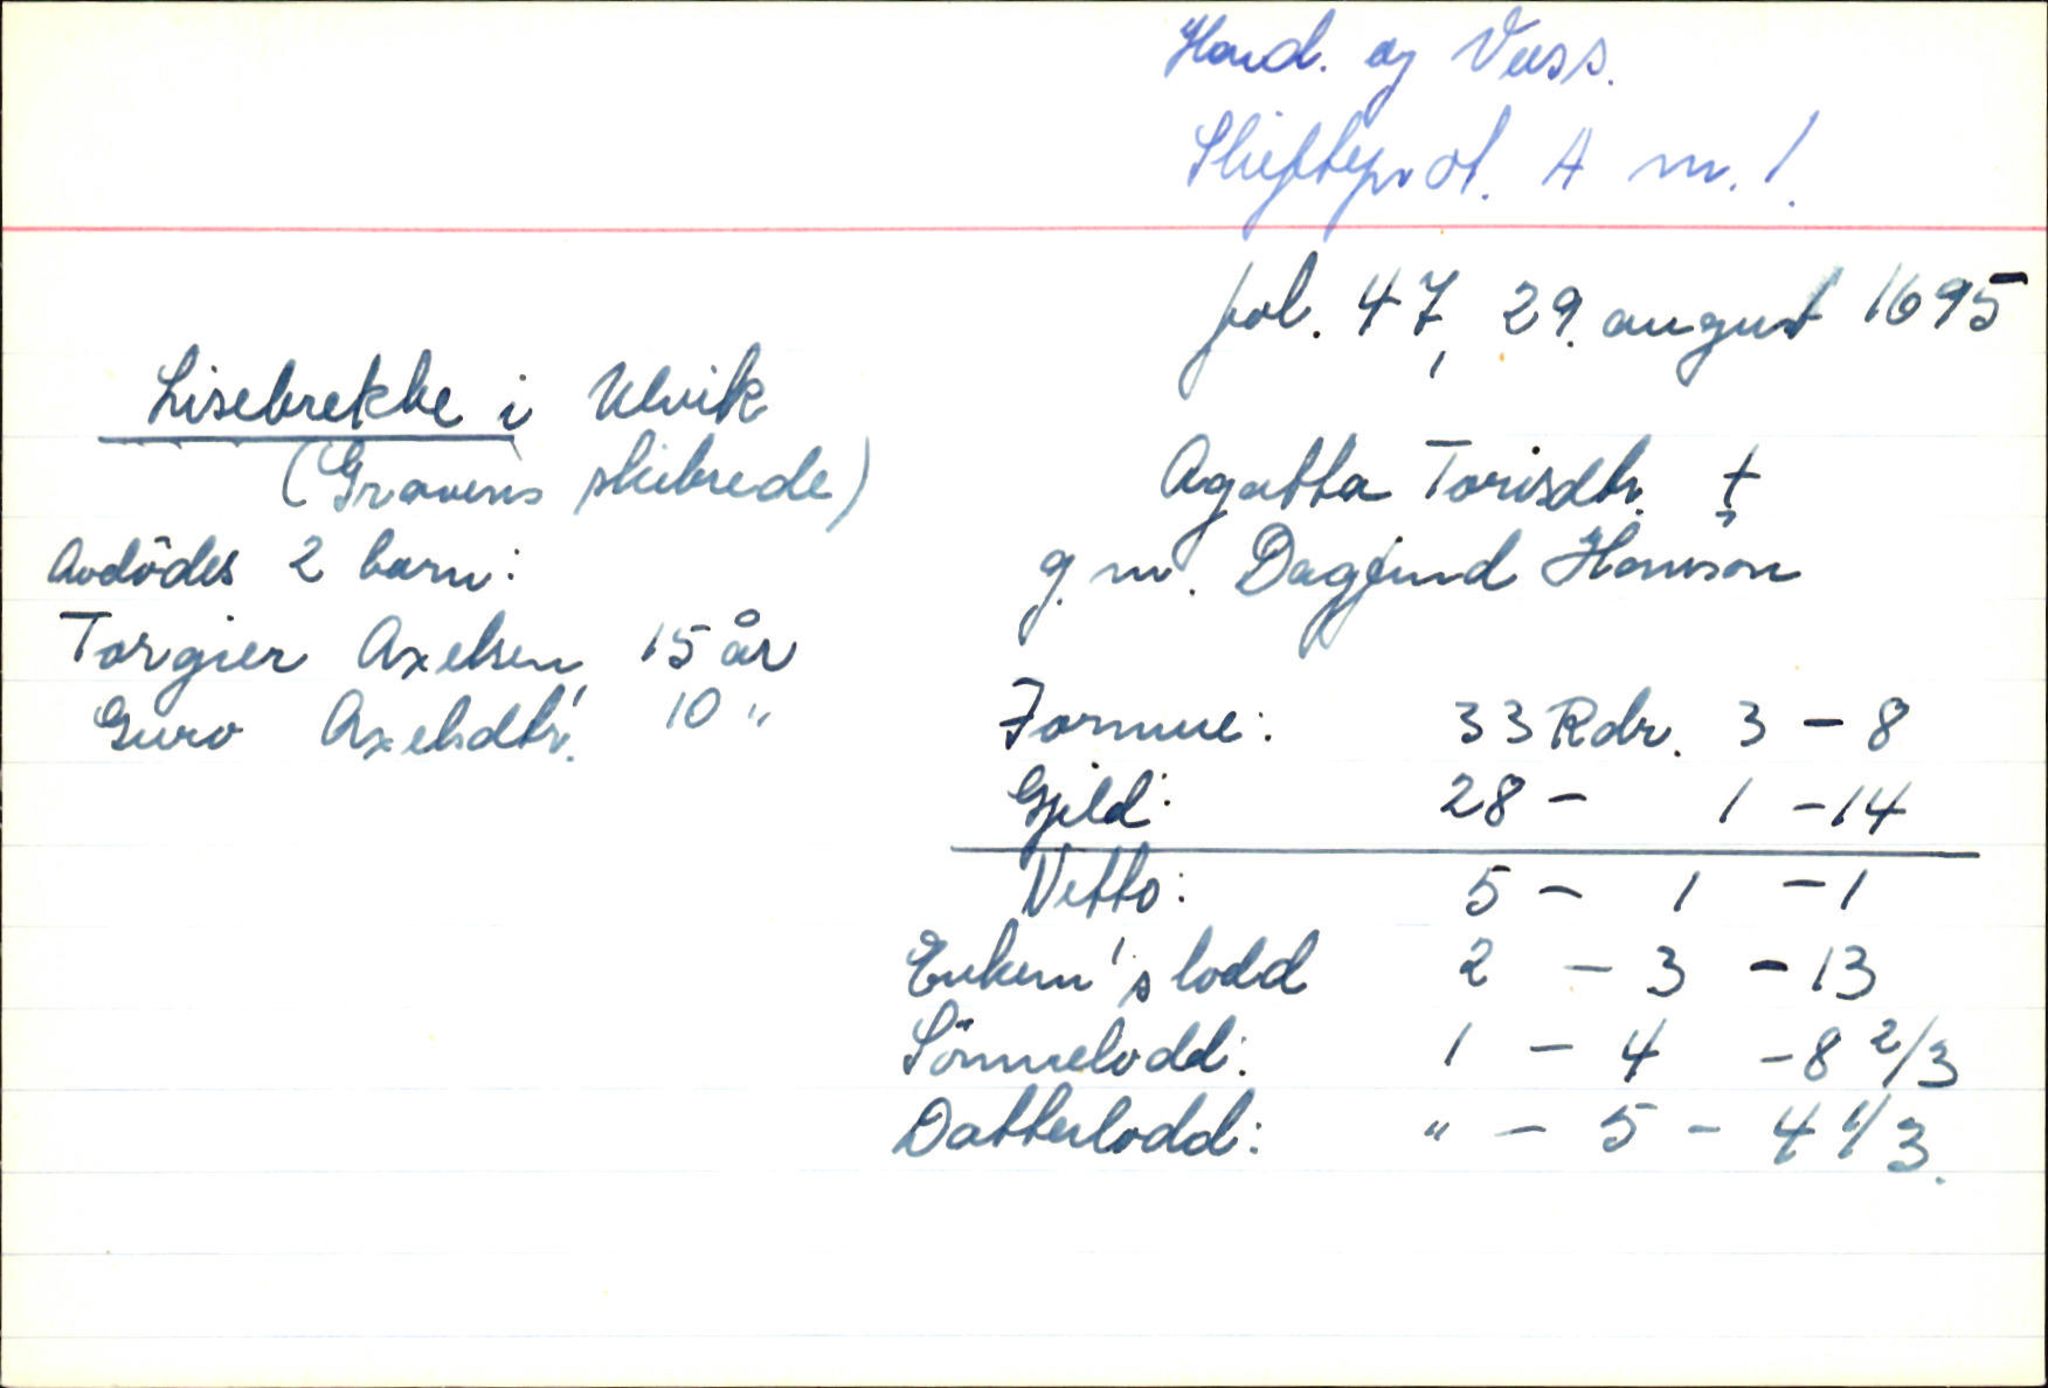 Hard. og Voss.
Skifteprot. A nr. 1.
fol. 47, 29. august 1695
Lisebrekke i Ulvik
(Gravens skibrede)
Agatta Torisdtr. †
g. m. Dagfind Hansson
Avdödes 2 barn:
Torgier Axelsen, 15 år
Guro Axelsdtr. 10 "
Formue: 33 Rdr. 3 - 8
Gjeld: 28 - 1 - 14
Netto: 5 - 1 - 1
Enkem's lodd 2 - 3 - 13
Sönnelodd: 1 - 4 - 8 2/3
Datterlodd: " - 5 - 4 1/3.